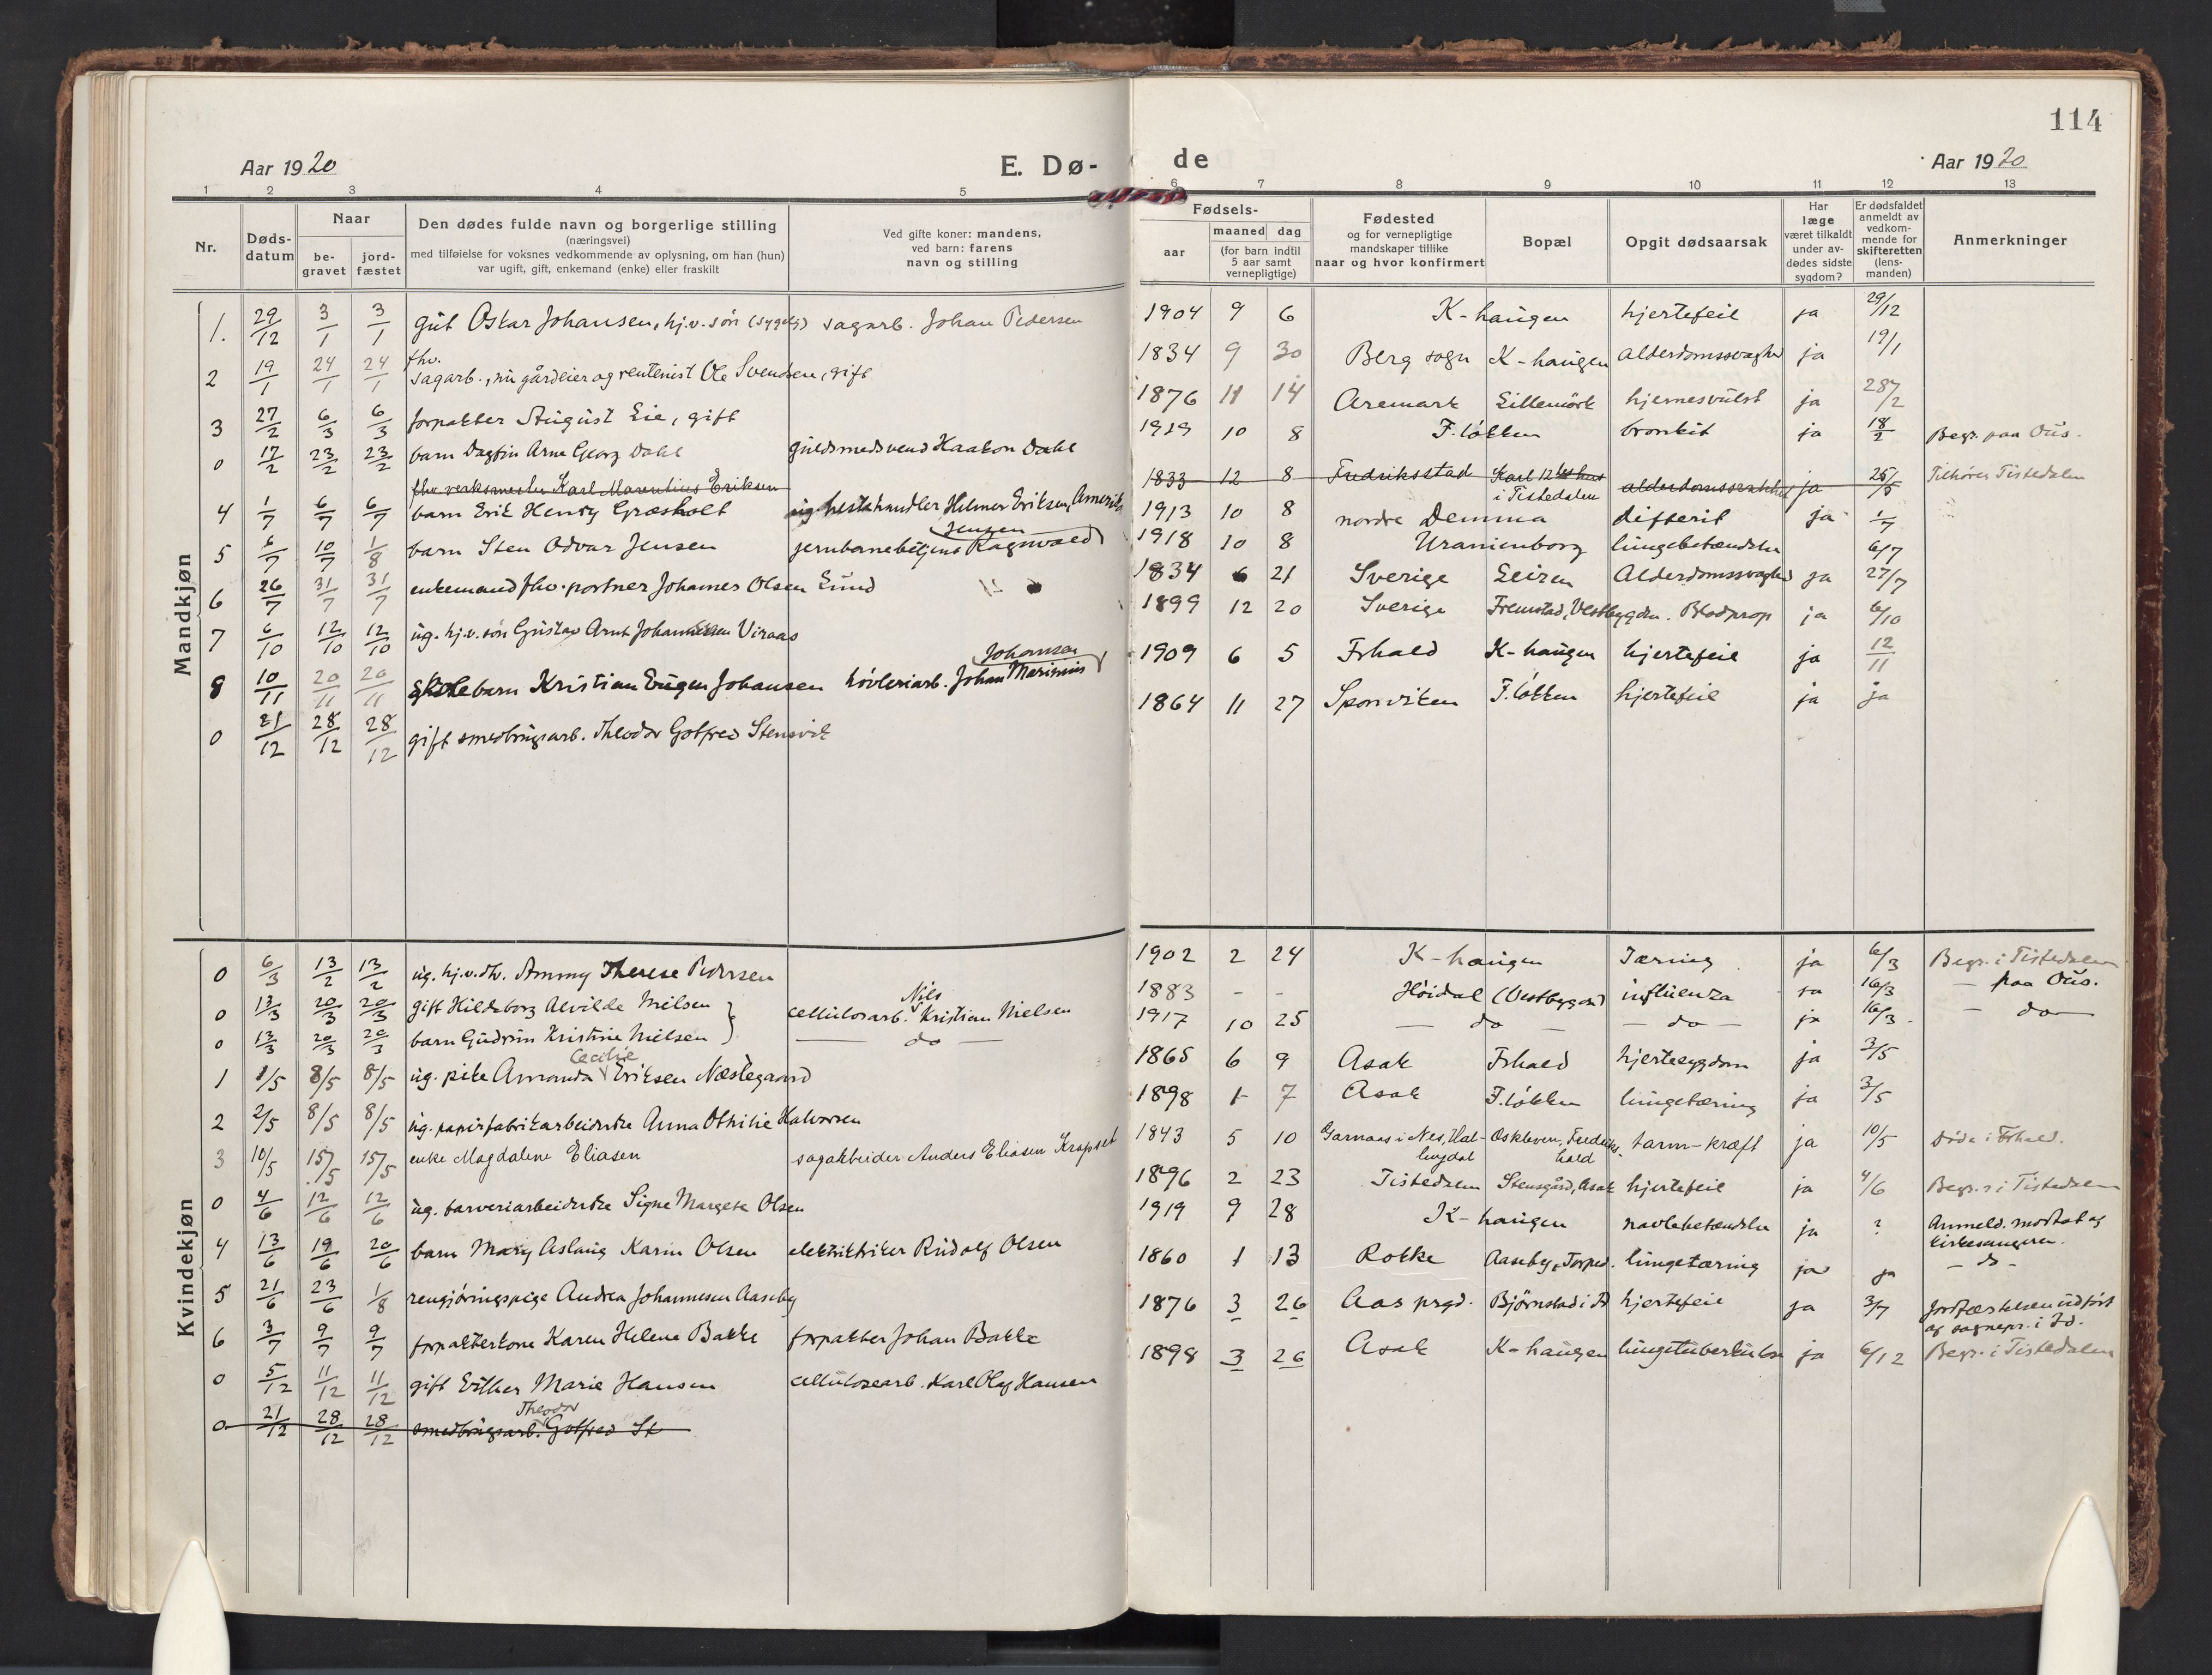 114
Aar 1920 E. Dø- de Aar 1920
1 2 3 4 5 6 7 8 9 10 11 12 13
Nr. Døds-datum Naar be-gravet jord-fæstet Den dødes fulde navn og borgerlige stilling (næringsvei) med tilføielse for voksnes vedkommende av oplysning, om han (hun) var ugift, gift, enkemand (enke) eller fraskilt Ved gifte koner: mandens, ved barn: farens navn og stilling Fødsels- aar maaned dag (for barn indtil 5 aar samt vernepligtige) Fødested og for vernepligtige mandskaper tillike naar og hvor konfirmert Bopæl Opgit dødsaarsak Har læge været tilkaldt under av-dødes sidste sygdom? Er dødsfaldet anmeldt av vedkom-mende for skifteretten (lens-manden) Anmerkninger
Mandkjøn
1. 29/12 3/1 3/1 gut Oskar Johansen, hj.v. søn (sygelig) sagarb. Johan Pedersen 1904 9 6 K-haugen hjertefeil ja 29/12
2 19/1 24/1 24/1 fhv. sagarb., nu gårdeier og rentenist Ole Svendsen, gift 1834 9 30 Berg sogn K-haugen alderdomssvaghed ja 19/1
3 27/2 6/3 6/3 forpakter August Lie, gift 1876 11 14 Aremark Lillemörk hjernesvulst ja 28/2
0 17/2 23/2 23/2 barn Dagfin Arne Georg Dahl guldsmedsvend Haakon Dahl 1919 10 8 F.løkken bronkit ja 18/2 Begr. paa Ous.
fhv. verksmester Karl Marentius Eriksen 1833 12 8 Fredriksstad Karl 12tes hus i Tistedalen alderdomssvakhet ja 25/5 Tilhører Tistedalen
4 1/7 6/7 6/7 barn Erik Henry Græsholt ug. hestehandler Helmer Eriksen, Amerika 1913 10 8 nordre Demma difterit ja 1/7
5 6/7 10/7 1/8 barn Sten Odvar Jensen jernbanebetjent Ragnvald Jensen 1918 10 8 Uranienborg lungebetændelse 6/7
6 26/7 31/7 31/7 enkemand fhv. portner Johannes Olsen Lund 1834 6 21 Sverige Leiren Alderdomssvaghed ja 27/7
7 6/10 12/10 12/10 ug. hj.v. søn Gustav Arnt Johannessen Viraas 1899 12 20 Sverige Fremstad, Vestbygden. Blodprop ja 6/10
8 10/11 20/11 20/11 skolebarn Kristian Eugen Johansen høvleriarb. Johan Marinius Johansen 1909 6 5 Frhald K-haugen hjertefeil ja 12/11
0 21/12 28/12 28/12 gift smedbrugsarb. Theodor Gotfred Stensvik 1864 11 27 Sponviken F.løkken hjertefeil ja ja
Kvindekjøn
0 6/3 13/2 13/2 ug. hj.v. dtr. Ammy Therese Pedersen 1902 2 24 K-haugen Tæring ja 6/3 Begr. i Tistedalen
0 13/3 20/3 20/3 gift Hildeborg Alvilde Nielsen cellulosarb. Nils Kristian Nielsen 1883 - - Høidal (Vestbygden) influenza ja 16/3 — paa Ous.
0 13/3 20/3 20/3 barn Gudrun Kristine Nielsen — do — 1917 10 25 — do — — do — ja 16/3 — do —
1 1/5 8/5 8/5 ug. pike Amanda Cecilie Eriksen Næstegaard 1865 6 9 Asak Frhald hjertesygdom ja 3/5
2 2/5 8/5 8/5 ug. papirfabrikarbeiderske Anna Othilie Halvorsen 1898 1 7 Asak F.løkken lungetæring ja 3/5
3 10/5 15/5 15/5 enke Magdalene Eliasen sagarbeider Anders Eliasen Krapset 1843 5 10 Garnaas i Nes, Hallingdal Oskleven, Fredrikshald tarm-kræft ja 10/5 Døde i Frhald.
0 4/6 12/6 12/6 ug. farveriarbeiderske Signe Margete Olsen 1896 2 23 Tistedalen Stensgård, Asak hjertefeil ja 4/6 Begr. i Tistedalen
4 13/6 19/6 20/6 barn Mary Aslaug Karin Olsen elektriktiker Rudolf Olsen 1919 9 28 K-haugen navlebetændelse ja ? Anmeld. mottat av kirkesangeren.
5 21/6 23/6 1/8 rengjøringspige Andrea Johannesen Aaseby 1860 1 13 Rokke Aaseby, Torped. lungetæring ja ja — do —
6 3/7 9/7 9/7 forpakterkone Karen Helene Bakke forpakter Johan Bakke 1876 3 26 Aas prgd. Bjørnstad i Id hjertefeil ja 3/7 Jordfæstelsen udført av sognepr. i Id.
0 5/12 11/12 11/12 gift Esther Marie Hansen cellulosearb. Karl Olaf Hansen 1898 3 26 Asak K-haugen lungetuberkulose ja 6/12 Begr. i Tistedalen
0 21/12 28/12 28/12 smedbrugsarb. Theodor Gotfred St